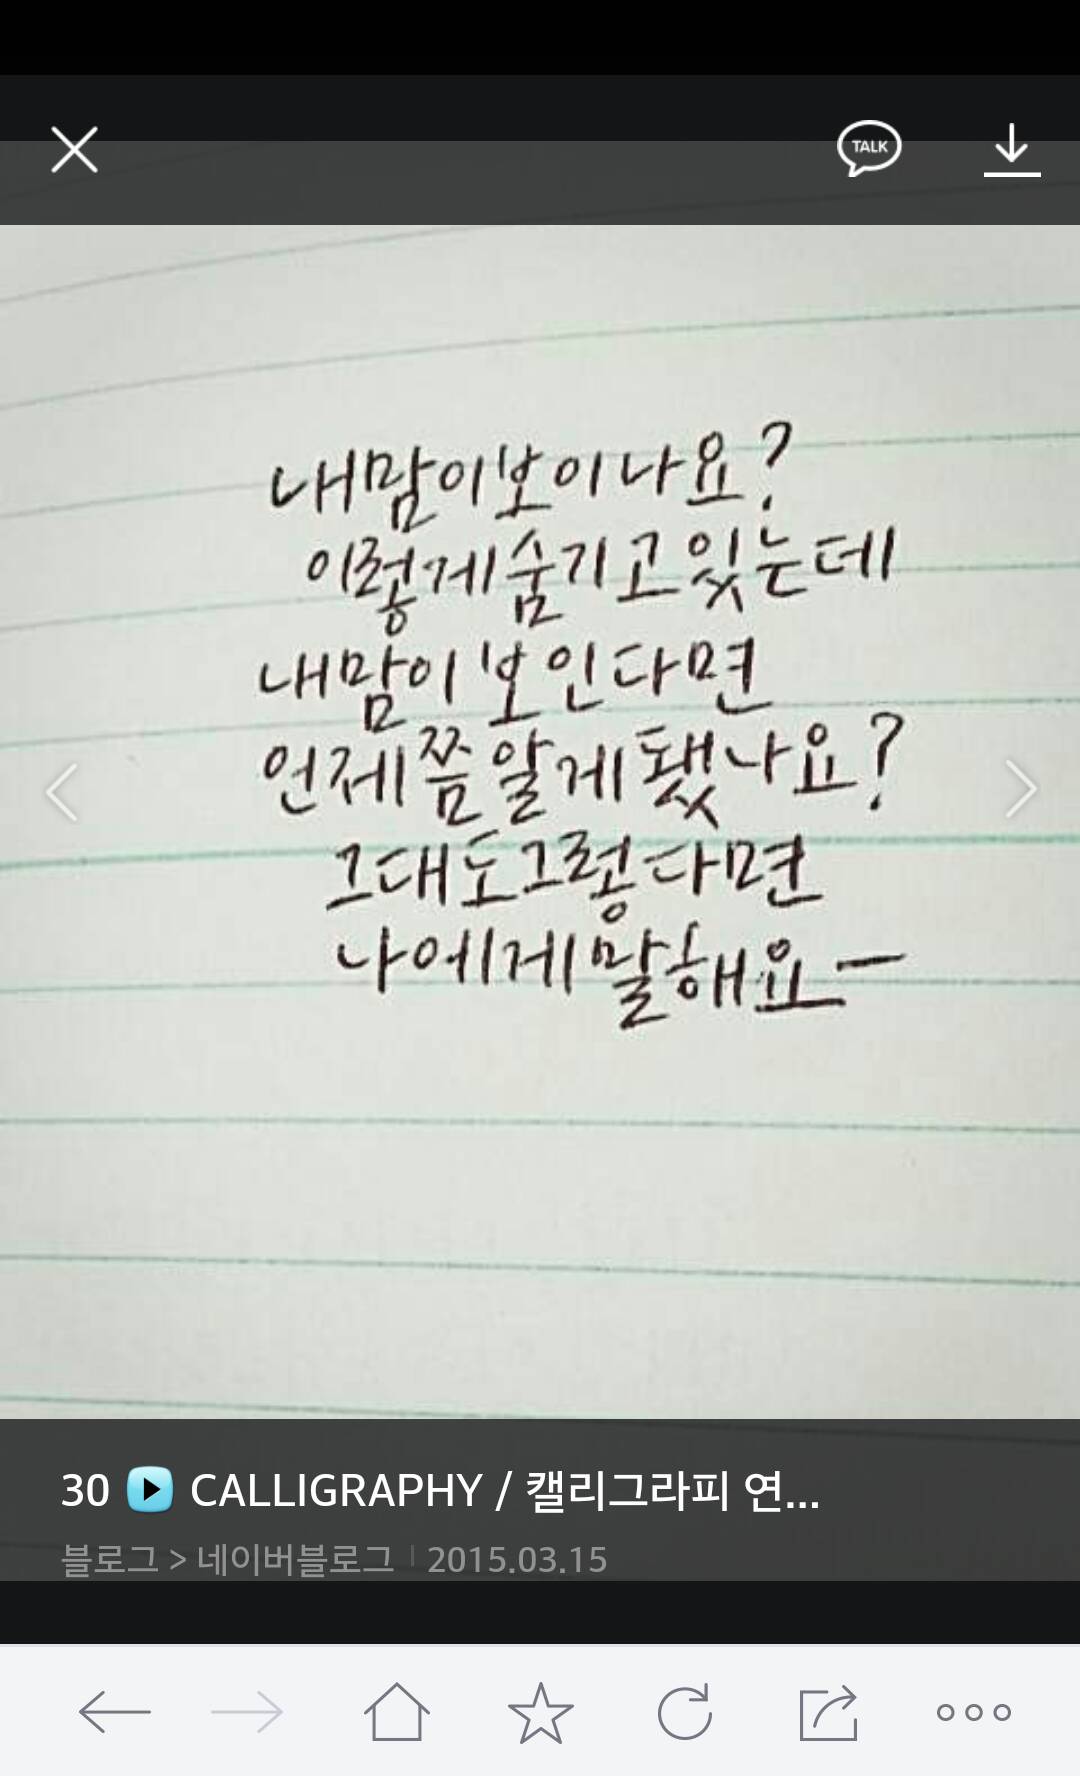 TALK
내맘이보이나요?
이렇게숨기고있는데
내맘이보인다면
언제쯤알게됐나요?
그대도그렇다면
나에게말해요ー
30 ▶ CALLIGRAPHY / 캘리그라피 연...
블로그 > 네이버블로그 | 2015.03.15